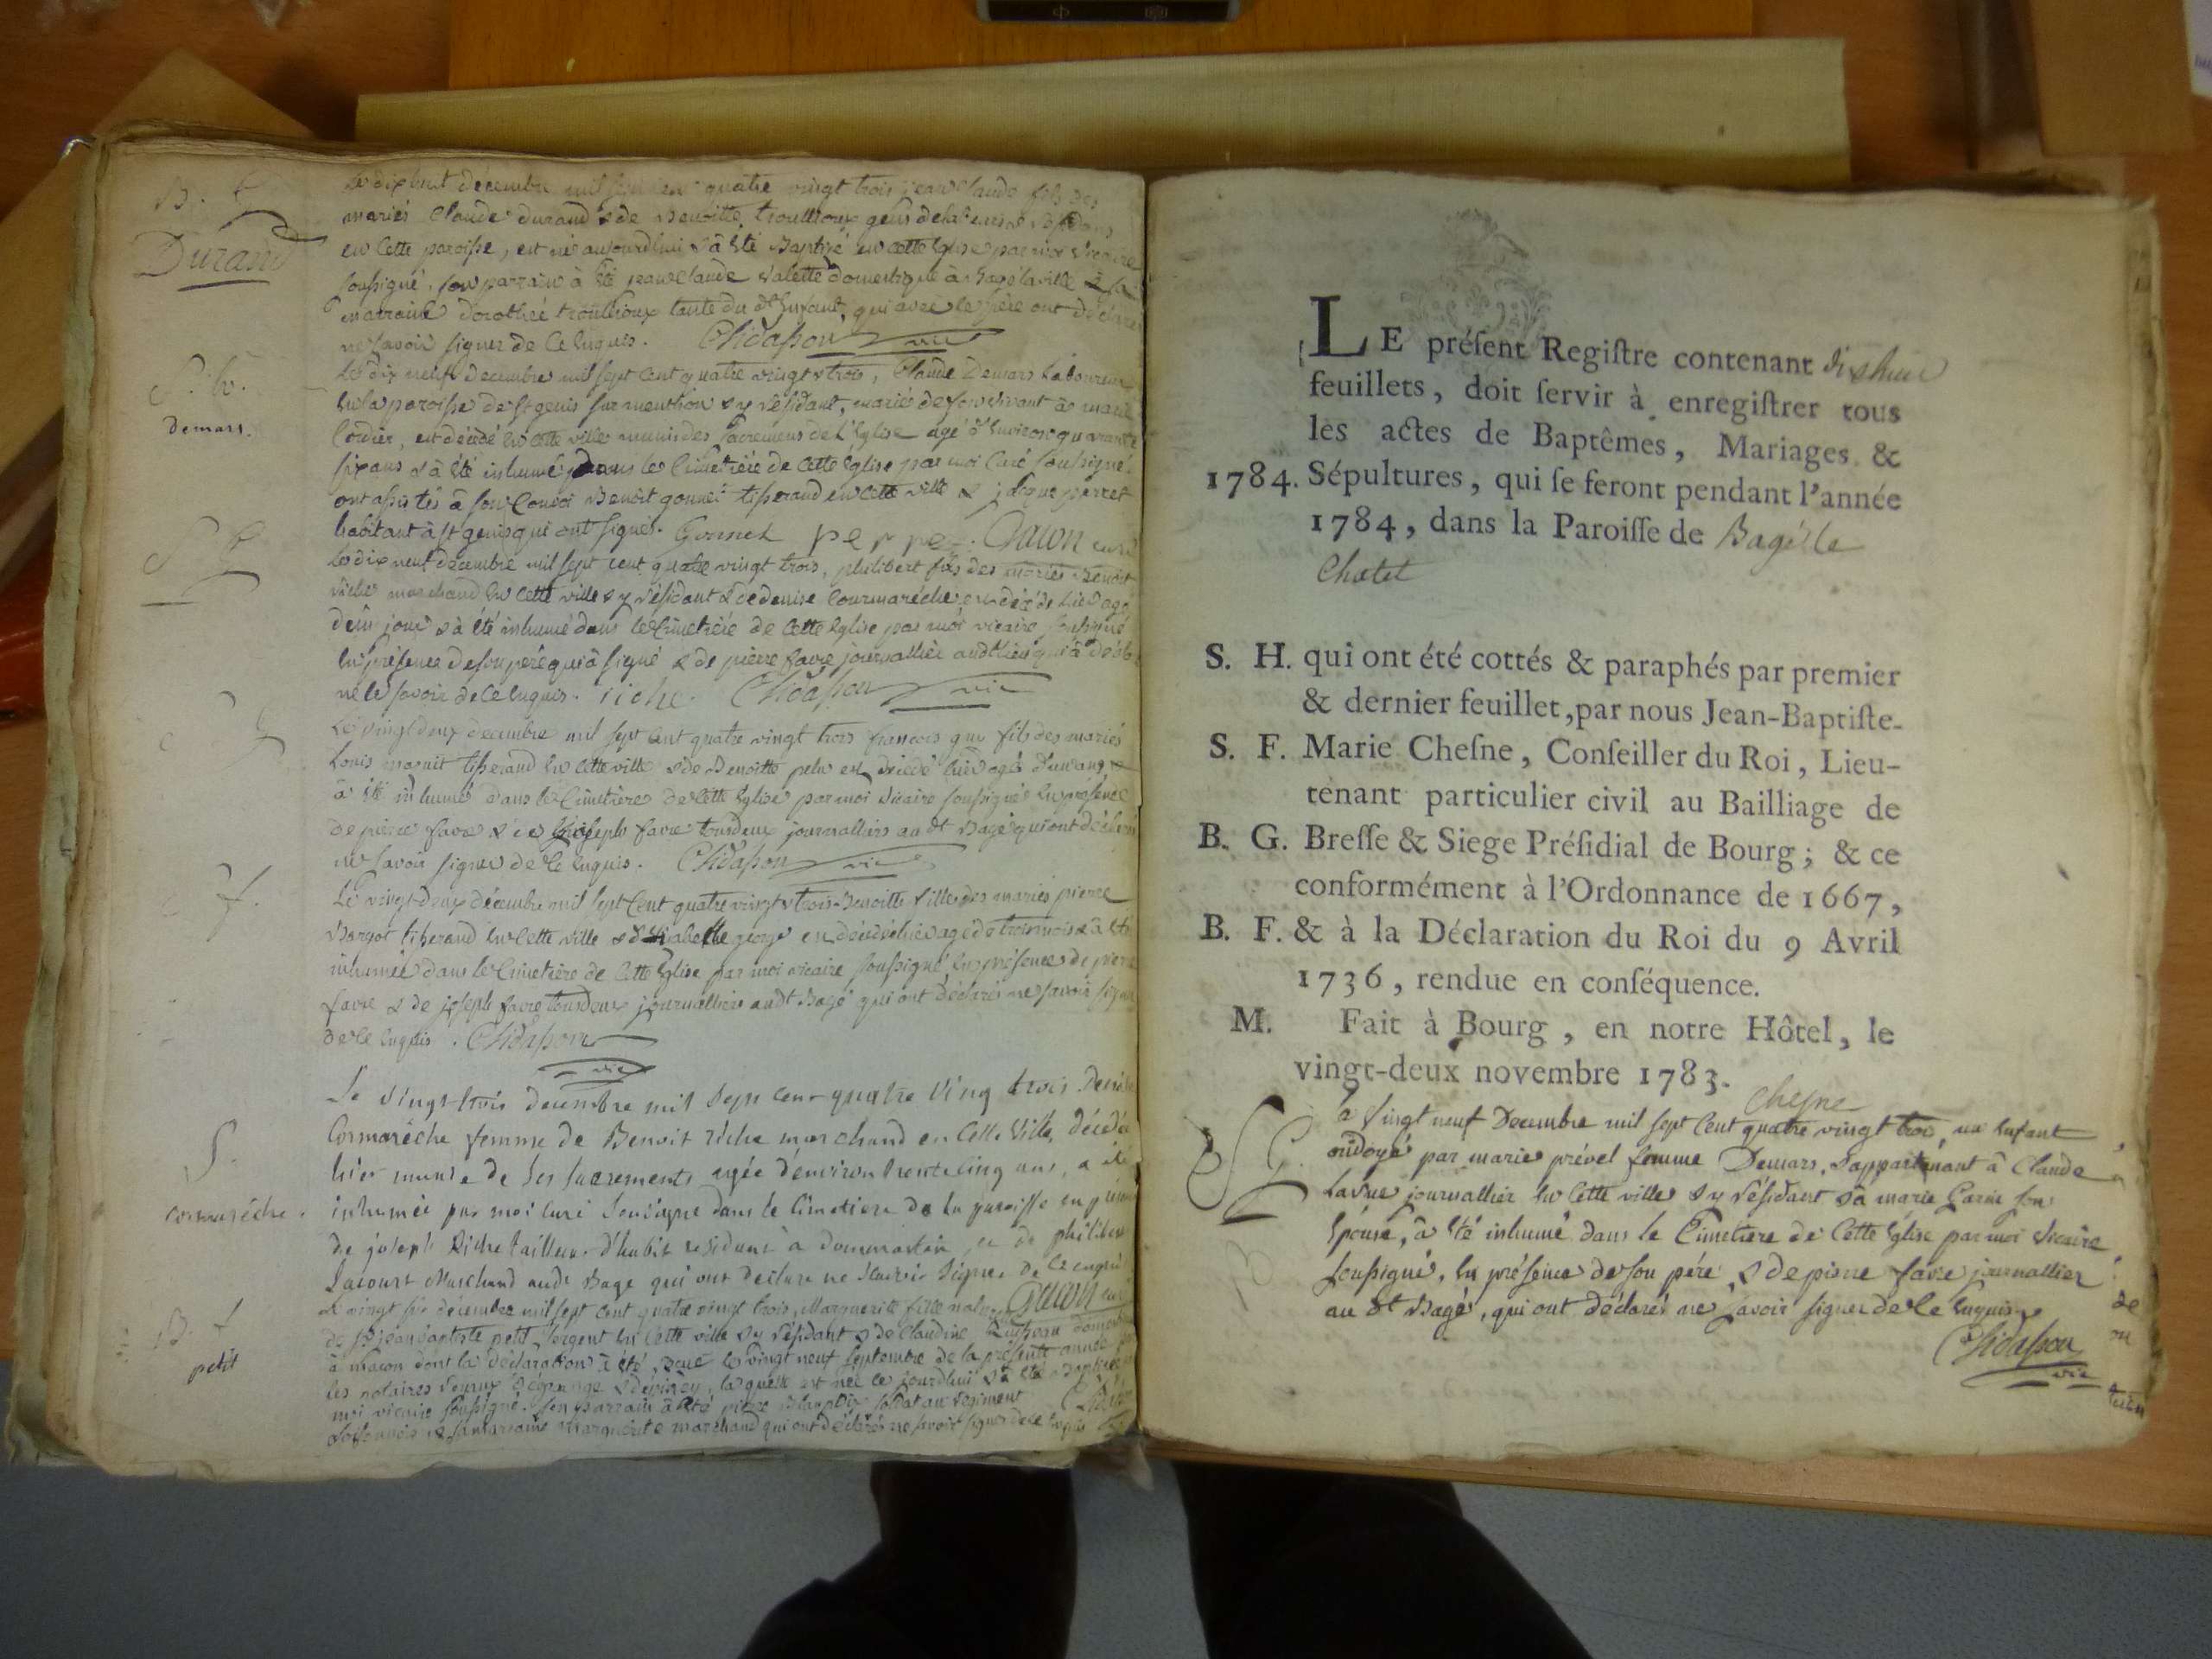 B. G.
Durand
Le dix huit decembre mil sept cent quatre vingt trois jean claude fils des
mariés Claude durand & de Benoitte trouilloux gens de
en cette paroisse, est né aujourd'hui & à été Baptisé en cette Eglise par moi vicaire
soussigné, son parrain à été jean claude valette domestique à Bagé la ville & sa
marraine dorothée trouilloux tante du dt Enfant, qui avec le père ont déclaré
ne savoir signer de ce Enquis. Chidasson vic
S. h.
demars.
Le dix neuf decembre mil sept cent quatre vingt trois, Claude Demars Laboureur
en la paroisse de st genis sur menthon & y résidant, marié de son vivant à marie
Cordier, est décédé en cette ville munis des Sacremens de l'Eglise agé d'Environ quarante
six ans & à été inhumé dans le Cimetière de cette Eglise par moi Curé soussigné
ont assistés à son Convoi Benoit gonnet tisserand en cette ville &
habitant à st genis qui ont signés. Gonnet perret. Gacon curé
S G
Le dix neuf decembre mil sept cent quatre vingt trois, philibert fils des mariés Benoit
riche marchand en cette ville & y résidant & de denise Courmarêche est décédé hier agé
d'un jour & à été inhumé dans le Cimetière de cette Eglise par moi vicaire soussigné
en présence de son père qui à signé & de pierre favre journallier audt lieu qui à déclaré
ne le savoir de ce Enquis. riche. Chidasson vic
G
Le vingt deux decembre mil sept cent quatre vingt trois françois fils des mariés
Louis tisserand en cette ville & de Benoitte est décédé hier agé d'un an &
à été inhumé dans le Cimetière de cette Eglise par moi vicaire soussigné en présence
de pierre favre & de joseph favre tous deux journalliers au dt Bagé qui ont déclaré
ne savoir signer de ce Enquis. Chidasson vic
f.
Le vingt deux décembre mil sept Cent quatre vingt trois Benoitte fille des mariés pierre
tisserand en cette ville & d' george est décédée hier agé de trois mois & à été
inhumée dans le Cimetière de cette Eglise par moi vicaire soussigné en présence de pierre
favre & de joseph favre tous deux journalliers audt Bagé qui ont déclarés ne savoir signer
de ce Enquis. Chidasson
vic
S.
cormarêche.
Le vingt-trois decembre mil sept cent quatre ving trois Denise
Cormarêche femme de Benoit riche marchand en Cette Ville, décédée
hier munie de ses sacrements agée d'environ trente cinq ans, a été
inhumée par moi curé soussigné dans le Cimetiere de la paroisse en présence
de joseph Riche tailleur d'habit residant à dommartin et de philibert
Lacourt Marchand audt Bagé qui ont declaré ne sçavoir signer de ce enquis
Gacon curé
B. f
petit
Le vingt six décembre mil sept cent quatre vingt trois, Marguerite fille naturelle
de jean baptiste petit sergent en cette ville & y résidant & de Claudine domestique
à macon dont la déclaration à été reçue le vingt neuf septembre de la présente année par
les notaires royaux, laquelle est née ce jourd'hui & à été Baptisée par
moi vicaire soussigné. Son parrain à été pierre soldat au regiment
& sa marraine Marguerite marchand qui ont déclarés ne savoir signer de ce Enquis
LE présent Registre contenant dix huit
feuillets, doit servir à enregistrer tous
les actes de Baptêmes, Mariages &
1784. Sépultures, qui se feront pendant l'année
1784, dans la Paroisse de Bagé le
Chatel
S. H. qui ont été cottés & paraphés par premier
& dernier feuillet, par nous Jean-Baptiste-
S. F. Marie Chesne, Conseiller du Roi, Lieu-
tenant particulier civil au Bailliage de
B. G. Bresse & Siege Présidial de Bourg; & ce
conformément à l'Ordonnance de 1667,
B. F. & à la Déclaration du Roi du 9 Avril
1736, rendue en conséquence.
M. Fait à Bourg, en notre Hôtel, le
vingt-deux novembre 1783.
Chesne
S G.
Le vingt neuf Decembre mil sept Cent quatre vingt trois, un Enfant
ondoyé par marie prével femme Demars, appartenant à Claude
journallier en cette ville & y résidant & à marie son
Epouse, à été inhumé dans le Cimetiere de cette Eglise par moi vicaire
soussigné, en présence de son père & de pierre favre journallier
au dt Bagé, qui ont déclarés ne savoir signer de ce Enquis
Chidasson
vic
de
ou